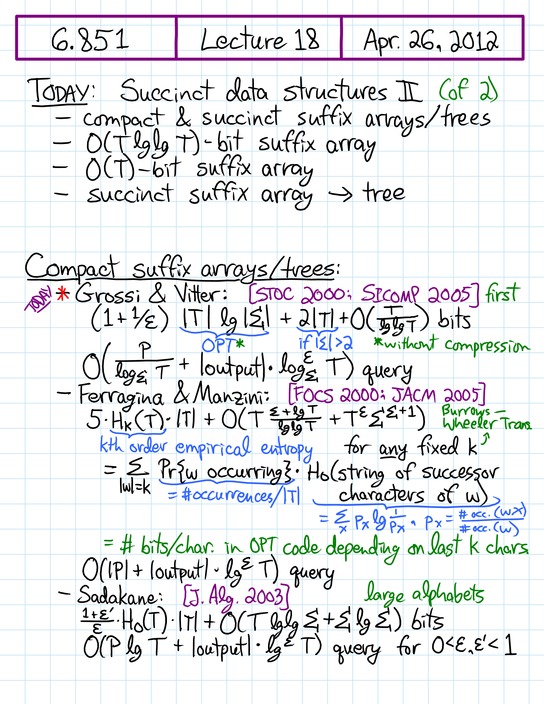 6.851 Lecture 18 Apr. 26, 2012
TODAY: Succinct data structures II (of 2)
— compact & succinct suffix arrays/trees
— O(T lg lg T)-bit suffix array
— O(T)-bit suffix array
— succinct suffix array → tree
Compact suffix arrays/trees:
TODAY * Grossi & Vitter: [STOC 2000; SICOMP 2005] first
(1+1/ε) |T| lg |Σ| + 2|T| + O(T/lg lg T) bits
OPT* if |Σ|>2 *without compression
O(P/log_Σ T + |output| · log_Σ^ε T) query
— Ferragina & Manzini: [FOCS 2000; JACM 2005]
5·H_k(T)·|T| + O(T (Σ+lg T)/lg lg T + T^ε Σ^(Σ+1)) Burrows–
Wheeler Trans
kth order empirical entropy for any fixed k
= Σ_{|w|=k} Pr{w occurring} · H₀(string of successor
characters of w)
= #occurrences/|T| = Σ_x p_x lg 1/p_x, p_x = #occ.(wx)/#occ.(w)
= # bits/char. in OPT code depending on last k chars
O(|P| + |output| · lg^ε T) query
— Sadakane: [J. Alg. 2003] large alphabets
(1+ε′)/ε · H₀(T)·|T| + O(T lg lg Σ + Σ lg Σ) bits
O(P lg T + |output| · lg^ε T) query for 0<ε,ε′<1